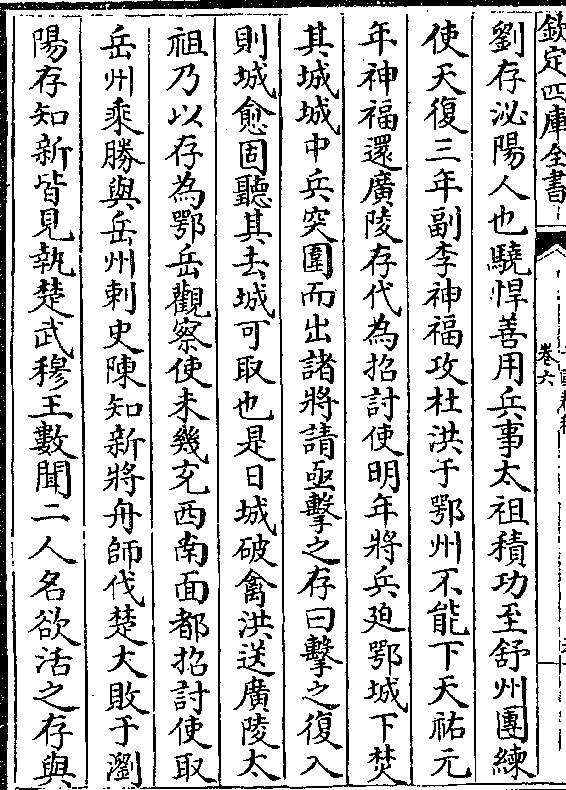 欽定四庫全書
卷六
劉存泌陽人也驍悍善用兵事太祖積功至舒州團練
使天復三年副李神福攻杜洪于鄂州不能下天祐元
年神福還廣陵存代為招討使明年將兵廹鄂城下焚
其城城中兵突圍而出諸將請亟擊之存曰擊之復入
則城愈固聽其去城可取也是日城破禽洪送廣陵太
祖乃以存為鄂岳觀察使未幾充西南面都招討使取
岳州乘勝與岳州刺史陳知新將舟師伐楚大敗于瀏
陽存知新皆見執楚武穆王數聞二人名欲活之存與